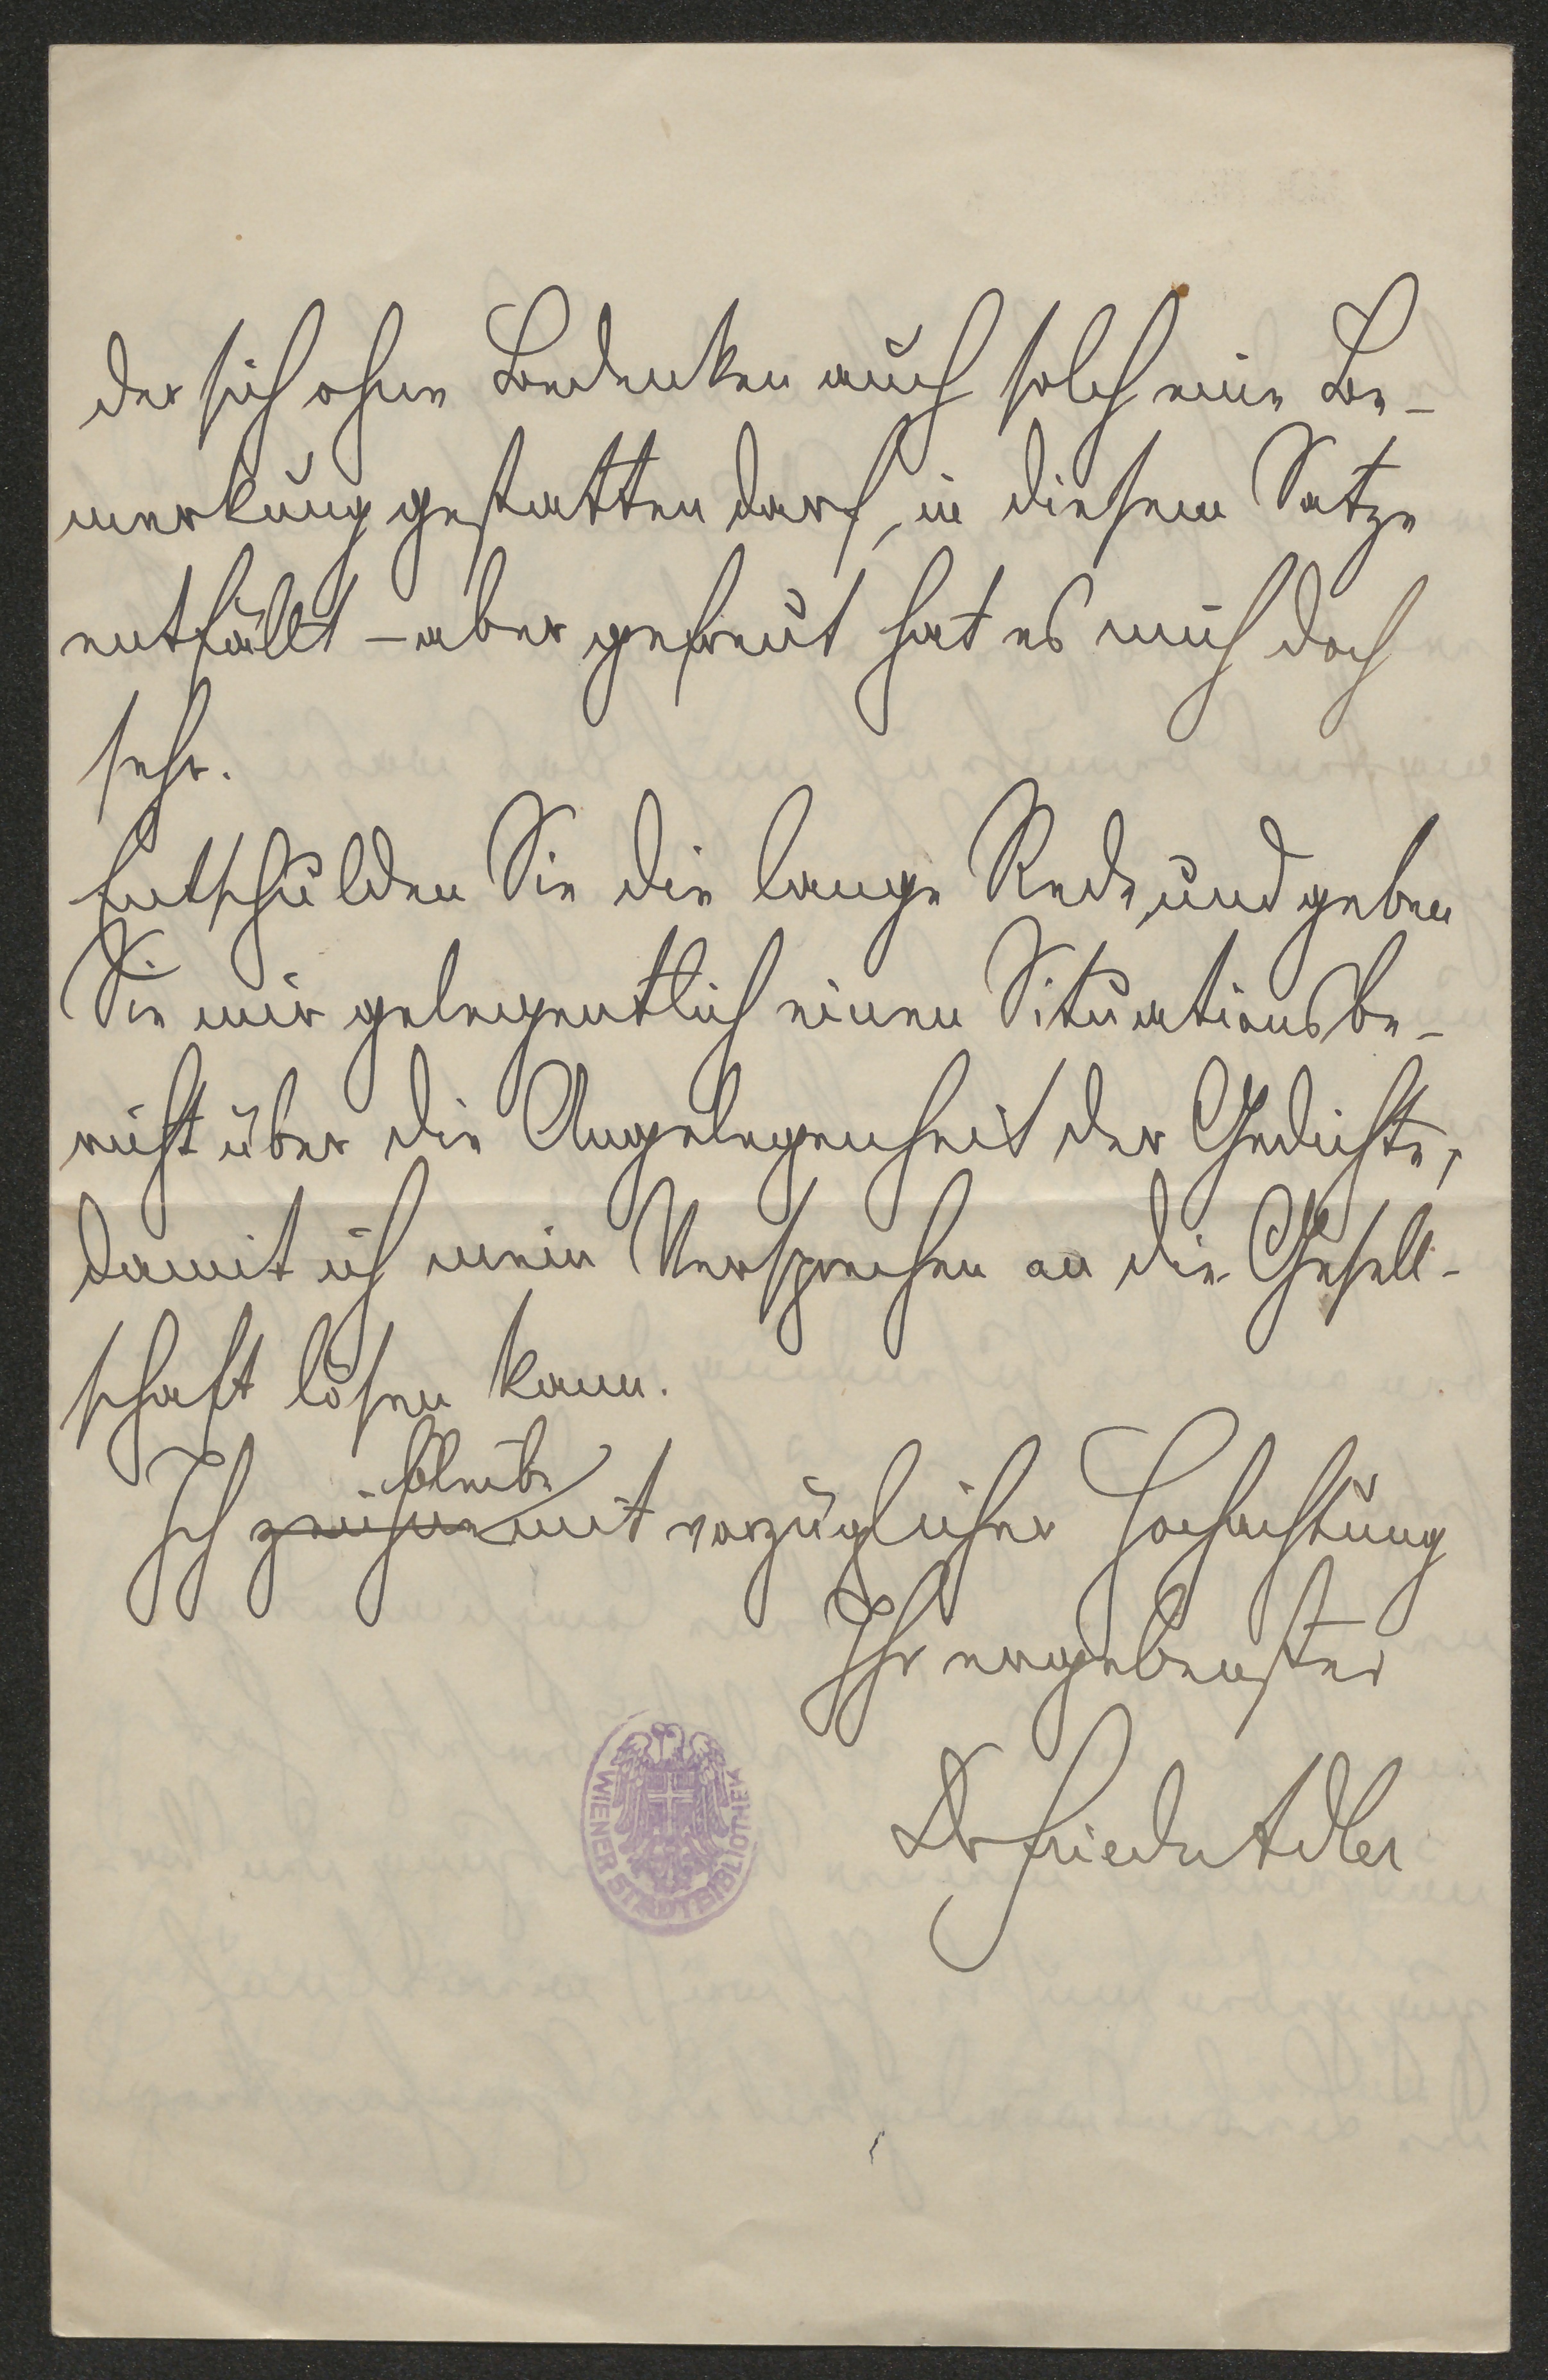 der sich ohne Bedenken auch solch eine Be-
merkung gestatten darf, in diesem Satze
entfällt – aber gefreut hat es mich doch
sehr.
Entschulden Sie die lange Rede, und geben
Sie mir gelegentlich einen Situationsbe-
richt über die Angelegenheit der Gedichte,
damit ich mein Versprechen an die Gesell-
schaft lösen kann.
bleibe
Ich zeichne mit vorzüglicher Hochachtung
Ihr ergebenster
Dr Friedr Adler
WIENER STADTBIBLIOTHEK